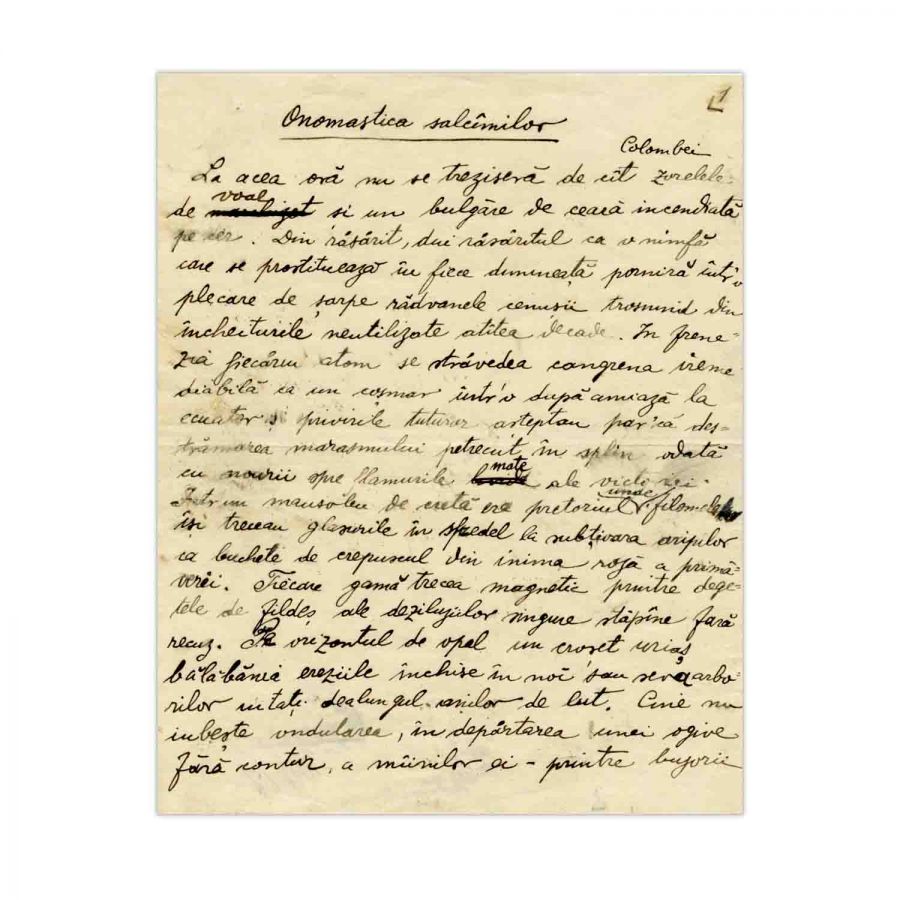 1
Onomastica salcîmilor
Colombei
La acea oră nu se treziseră de cît zorelele
de voal si un bulgăre de ceară incendiată
pe cer. Din răsărit, dui răsăritul ca o nimfă
care se prostituează în fiece dumneață porniră într'o
plecare de șarpe rădvanele cenusii trosnind din
încheiturile neutilizate atîtea decade. In frene-
zia fiecărui atom se străvedea cangrena ireme
diabilă ca un coșmar într'o după amiază la
ecuator și privirile tuturor asteptau par'că des-
trămarea marasmului petrecut în splin odată
cu nourii spre flamurile mate ale victoriei.
Intr'un mausoleu de cretă era pretoriul unde filomele
își treceau glasurile în sfredel la subțioara aripilor
ca buchete de crepuscul din inima roșă a primă-
verii. Fiecare gamă trecea magnetic printre dege-
tele de fildeș ale deziluziilor singure stăpîne fără
recuz. Pe orizontul de opal un croset uriaș
bălăbănia ereziile închise în noi sau seva arbo-
rilor uitați dealungul anilor de lut. Cine nu
iubește ondularea, în depărtarea unei ogive
fără contur, a mîinilor ei - printre bujorii